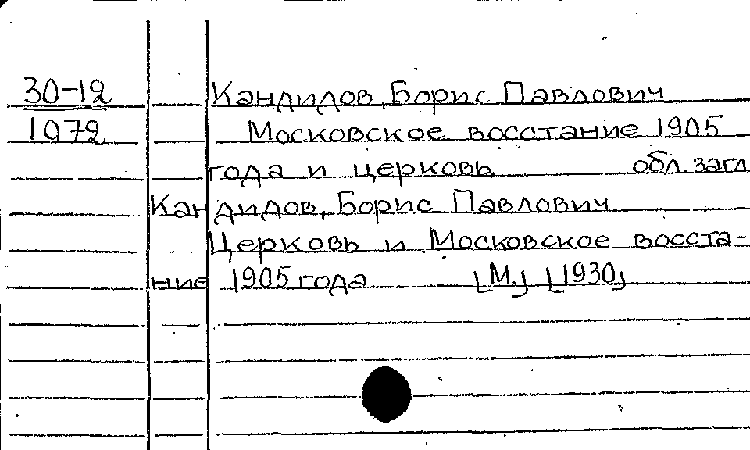 30-12 Кандидов, Борис Павлович
1072 Московское восстание 1905
года и церковь обл. загл
Кандидов, Борис Павлович
Церковь и Московское восста-
ние 1905 года [М.] [1930]